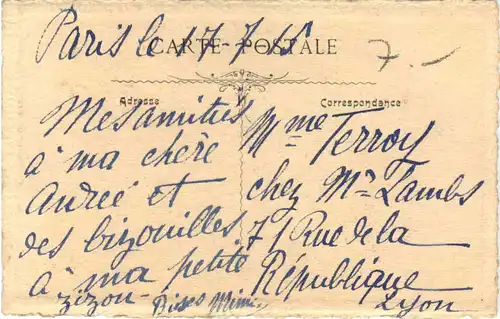 Paris le 17-7-15
CARTE POSTALE
7.-
Adresse
Correspondance
Mes amitiés
à ma chère
Aurée et
des bizouilles
à ma petite
zizou-
Bises Mimi
Mme Terroy
chez Mr Lambs
71 Rue de la
République
Lyon